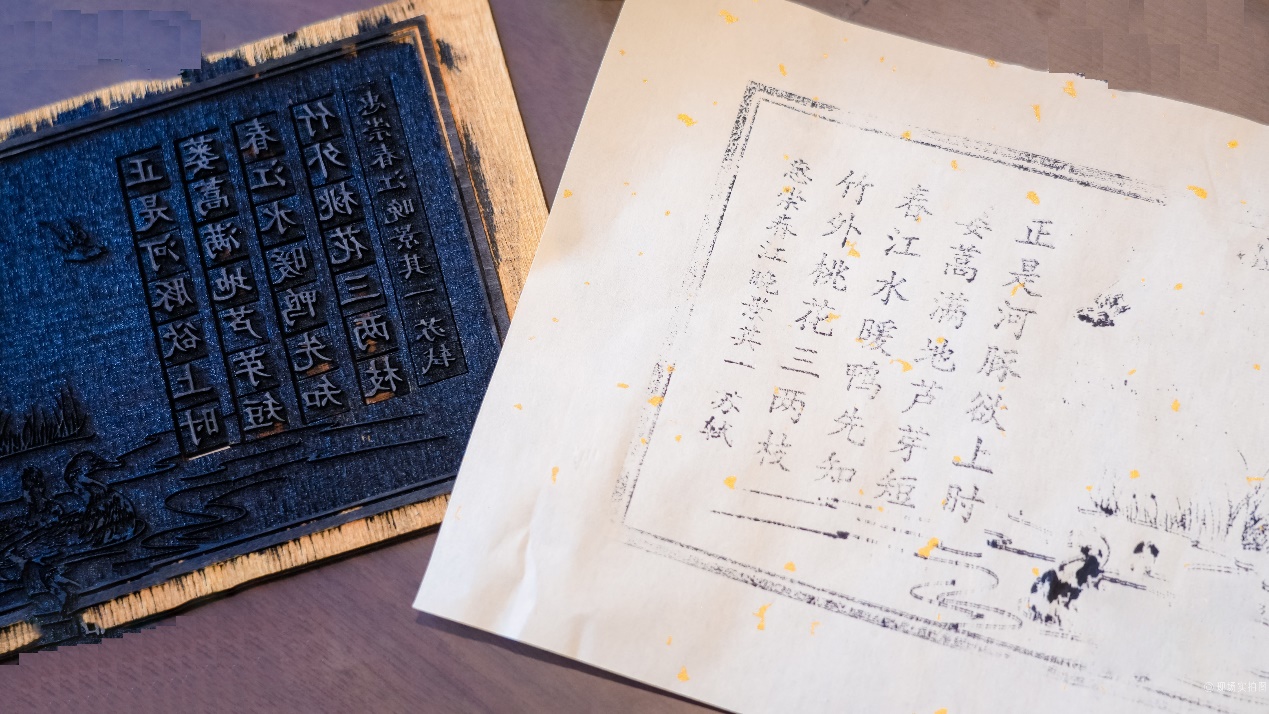 惠崇春江晚景其一 苏轼
竹外桃花三两枝
春江水暖鸭先知
蒌蒿满地芦芽短
正是河豚欲上时
惠崇春江晚景其一 苏轼
竹外桃花三两枝
春江水暖鸭先知
蒌蒿满地芦芽短
正是河豚欲上时